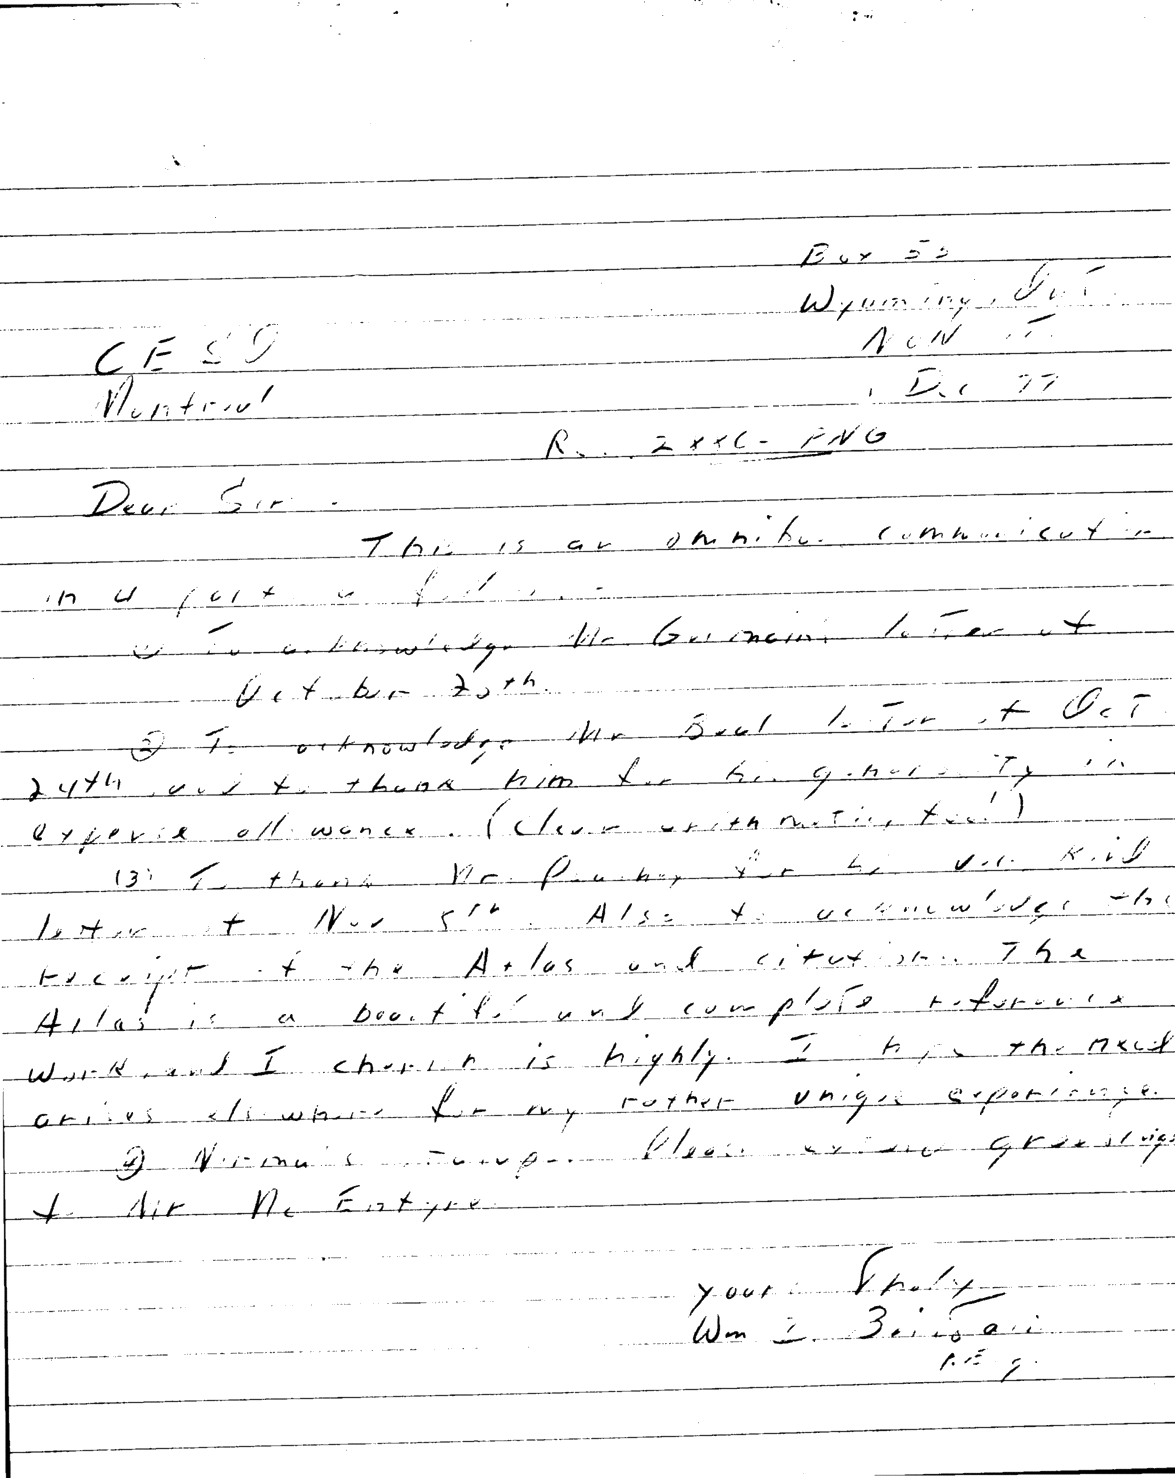 Box 55
Wyoming, Ont.
NON
CESO
Dec 77
Montreal
PNG
Dear Sir -
This is an omnibus communication
in 4 parts as follows -
① To acknowledge Mr letter of
October
② To acknowledge Mr letter of Oct
24th and to thank him for his generosity in
expense allowance. (Clever arithmetic, too!)
(3) To thank Mr. for his very kind
letter of Nov 5th. Also to acknowledge the
receipt of the Atlas and citation. The
Atlas is a beautiful and complete reference
work and I cherish is highly. I hope the need
arises elsewhere for my rather unique experience.
④ Please extend greetings
to Mr Mc Entyre
Yours Truly
Wm